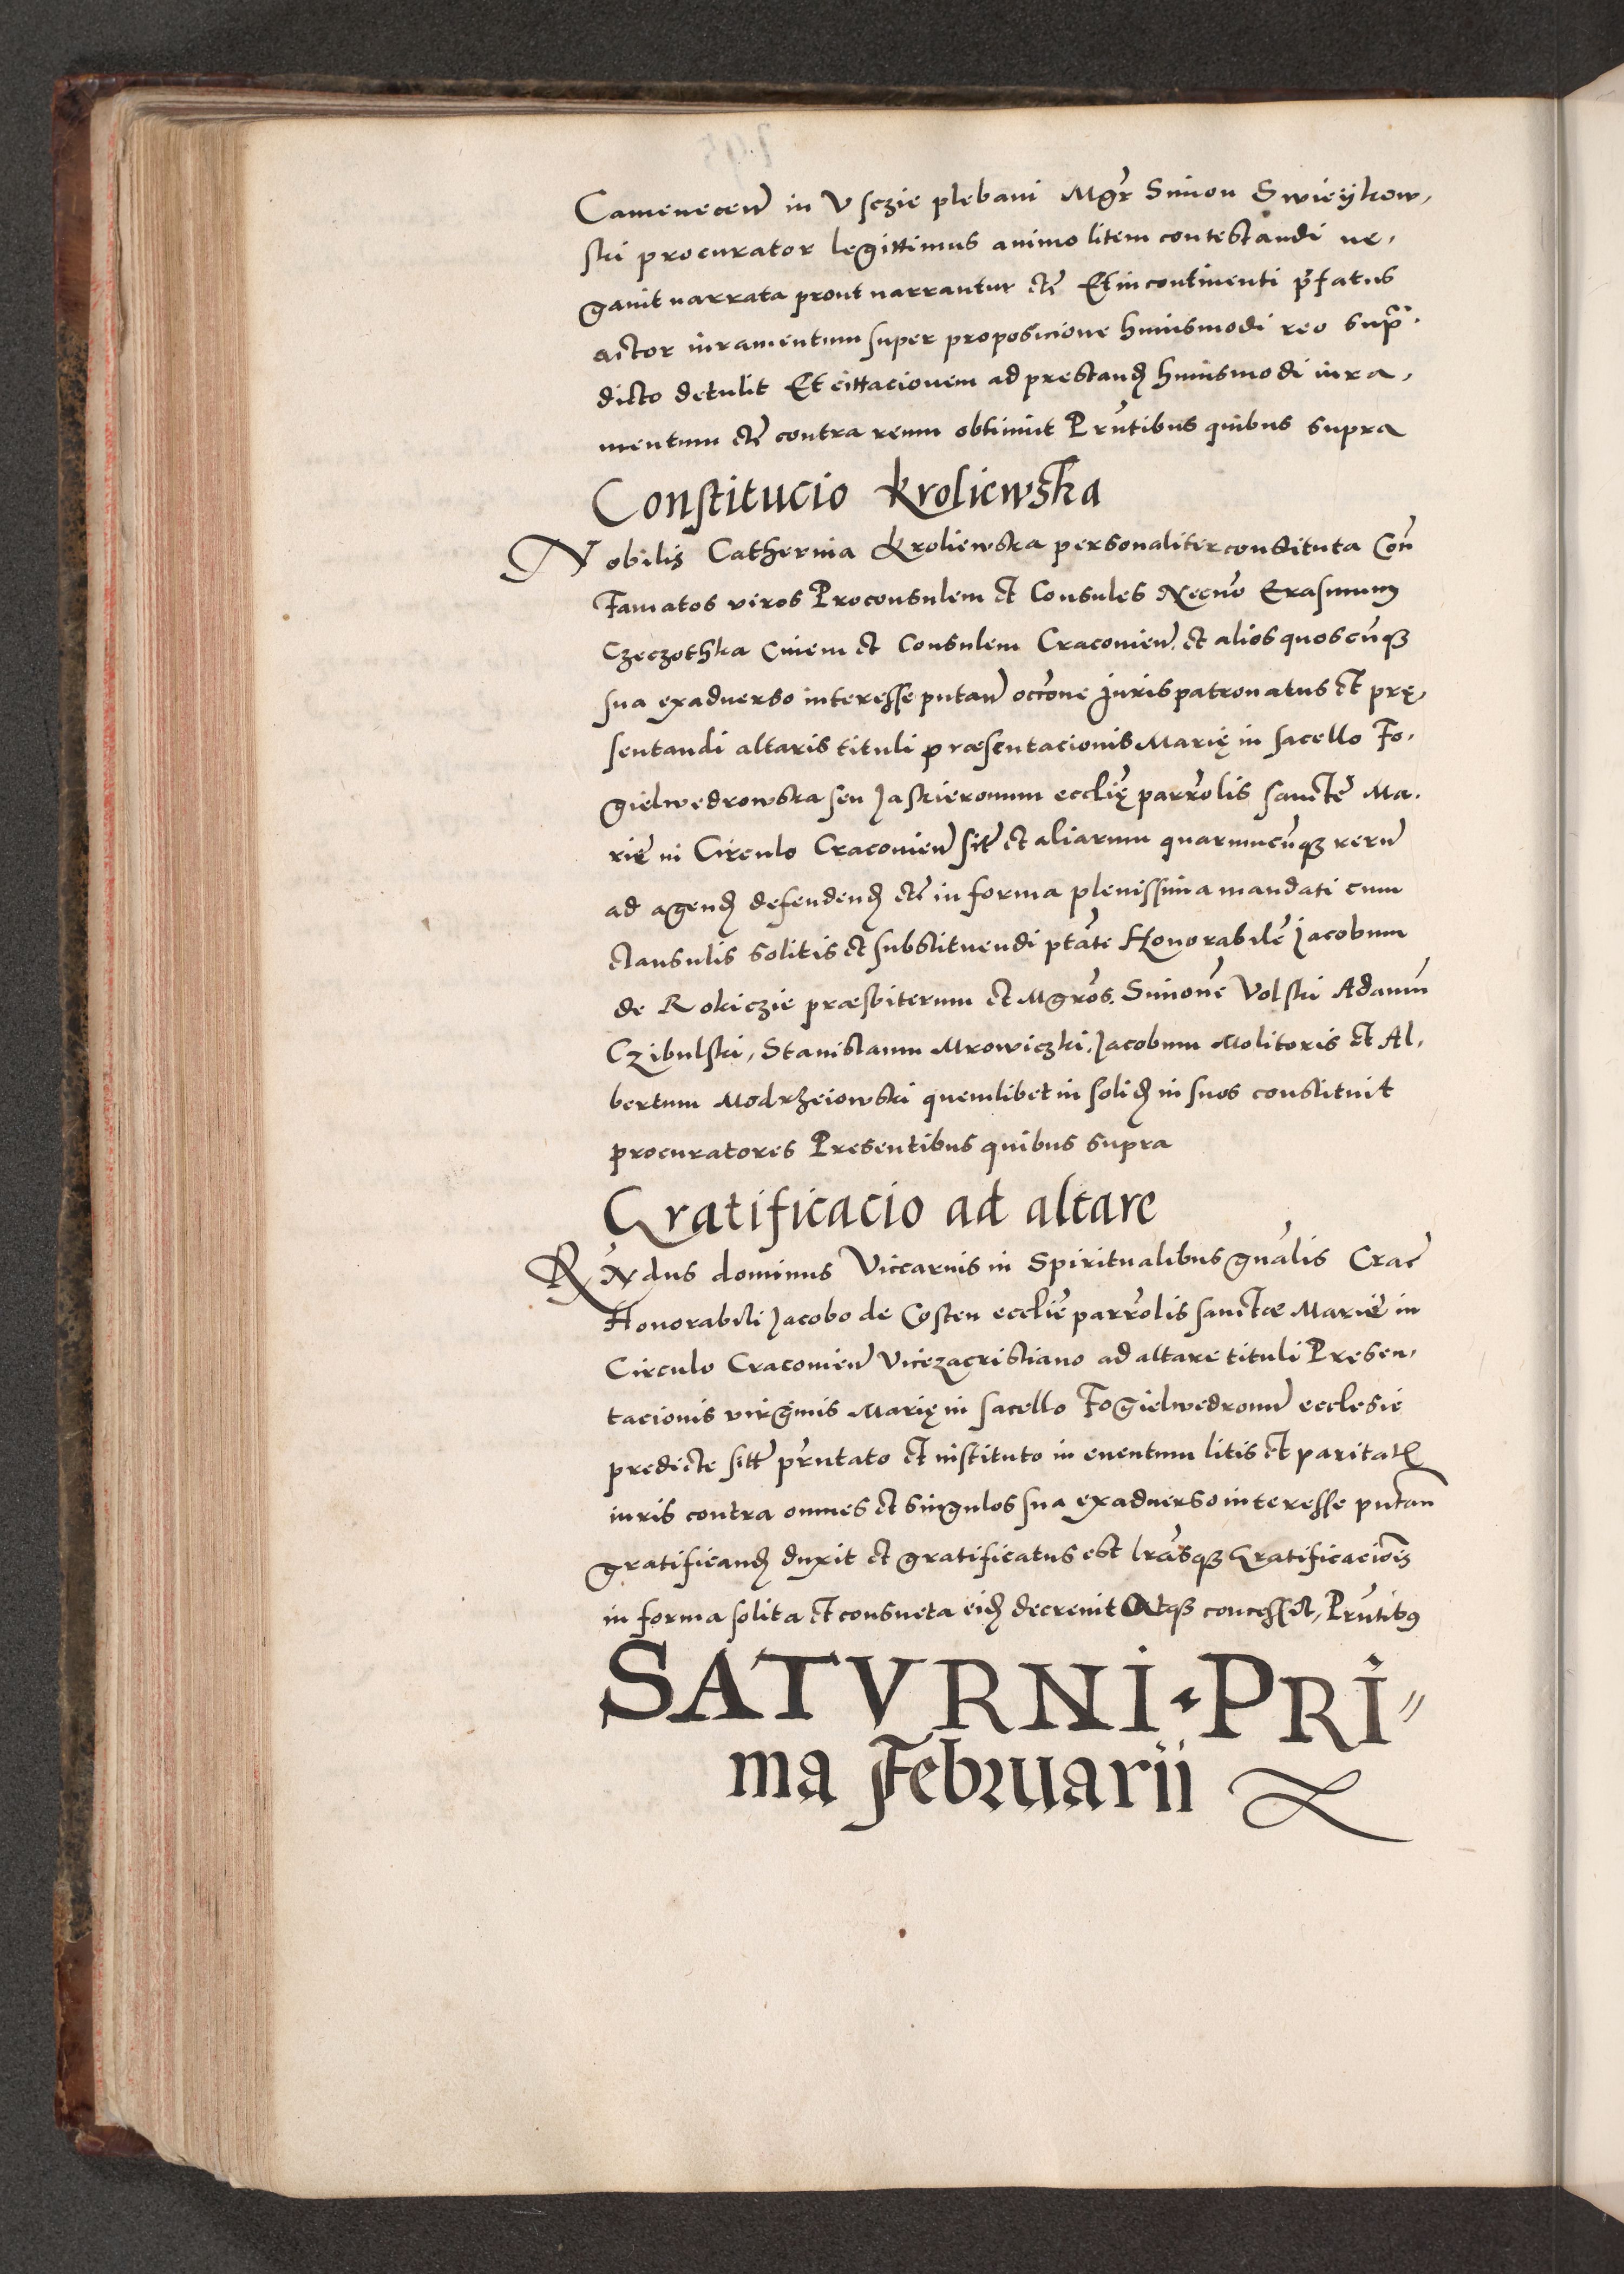 Camenecen̄ in Usczie plebani Mgr̄ Simon Swieykow,
ski procurator legittimus animo litem contestandi ne,
gauit narrata prout narrantur etc̄ Et in continenti p̄fatus
actor iuramentum super proposicione huiusmodi reo supra
dicto detulit Et cittacionem ad prestand̄ huiusmodi iura,
mentum etc̄ contra reum obtinuit Pn̄tibus quibus supra
Constitucio Kroliewska
Nobilis Catherina Kroliewska personaliter constituta Con̄
Famatos viros Proconsulem et Consules Necno Erasmum
Czeczothka Ciuem et Consulem Cracovien̄. et alios quoscūq3
sua exaduerso interesse putan̄ occ̄one Jurispatronatus et prę,
sentandi altaris tituli præsentacionis Marię in sacello Fo,
gielwedrowska seu Jaskieronum eccl̄ię parro̅lis sanctę Ma.
rie in Circulo Cracovien̄ sit̄ et aliarum quarumcūq3 rerum̄
ad agend̄ defendend̄ etc̄ in forma plenissima mandati cum
clausulis solitis et substituendi ptāte Honorabilē Jacobum
de Rokiczie præsbiterum et Mgros̄. Simonē Volski Adamū
Czibulski, Stanislaum Mrowiczki, Jacobum Molitoris et Al,
bertum Modrzeiowski quemlibet in solid̄ in suos constituit
procuratores Presentibus quibus supra
Gratificacio ad altare
Rn̄dus dominus Viccarius in Spiritualibus gnālis Crac̄
Honorabili Jacobo de Costen eccl̄ie parro̅lis sanctæ Marię in
Circulo Cracovien̄ Vicezacristiano ad altare tituli Presen,
tacionis virginis Marię in sacello Fogielwedronū ecclesie
predicte sitt̄ pn̄tato et instituto in euentum litis et paritat̄
iuris contra omnes et singulos sua exaduerso interesse putan̄
gratificand̄ duxit et gratificatus est lrāsq3 Gratificacionis̄
in forma solita et consueta eid̄ decreuit Atq3 concessit, Pn̄tibus
SATVRNI · PRI〃
ma Februarii